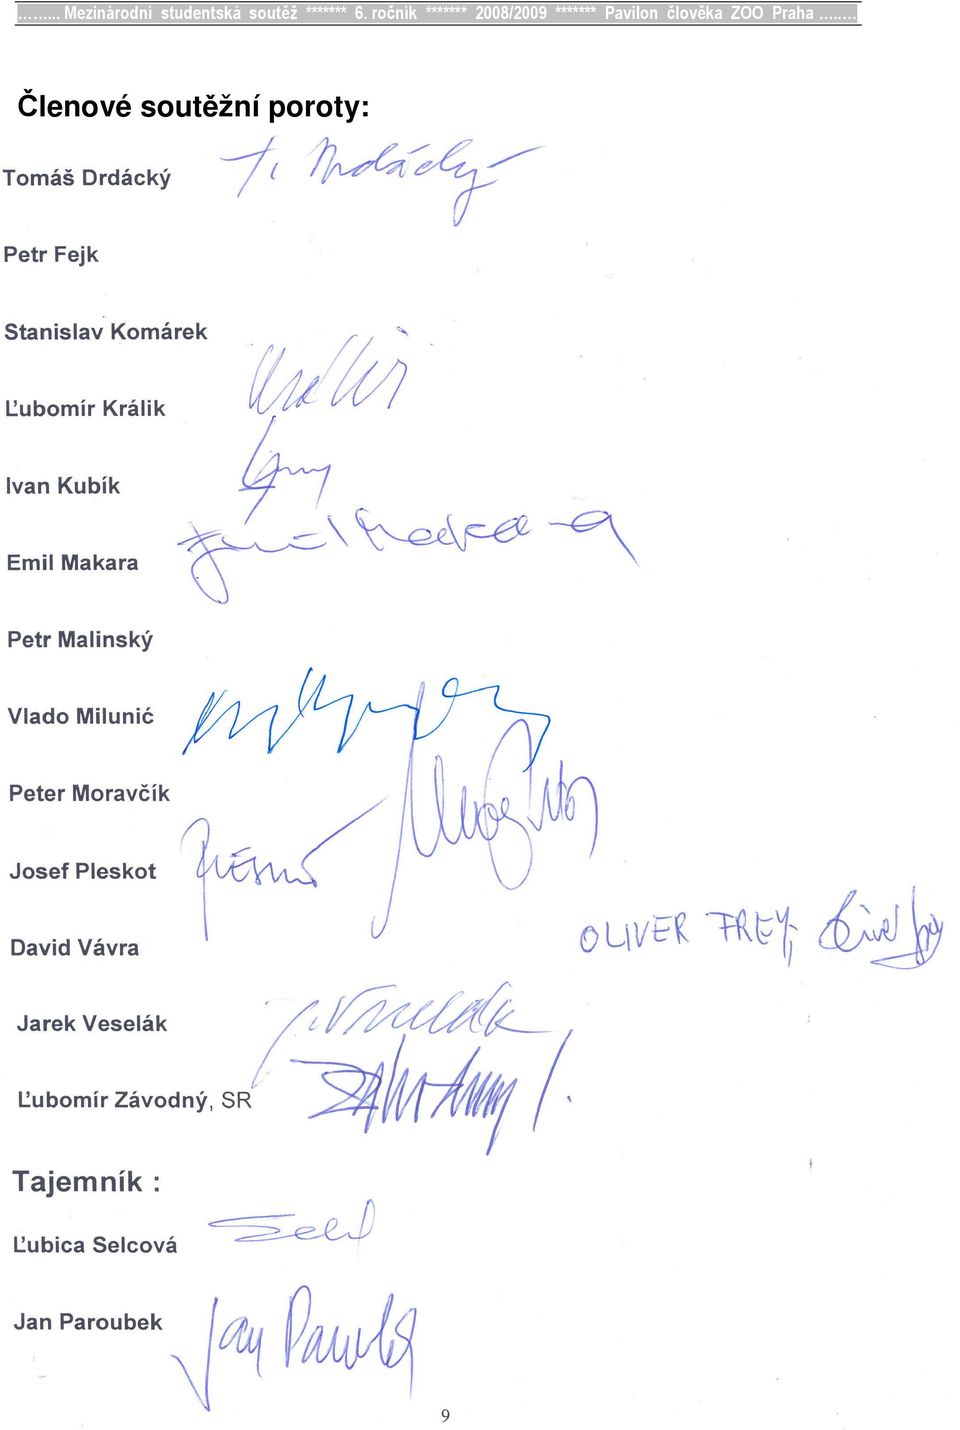 ……... Mezinárodní studentská soutěž ******* 6. ročník ******* 2008/2009 ******* Pavilon člověka ZOO Praha .….…
Členové soutěžní poroty:
Tomáš Drdácký T. Drdácký
Petr Fejk
Stanislav Komárek
Ľubomír Králik
Ivan Kubík
Emil Makara Emil Makara
Petr Malinský
Vlado Milunić
Peter Moravčík
Josef Pleskot
David Vávra OLIVER FREY,
Jarek Veselák J. Veselák
Ľubomír Závodný, SR
Tajemník :
Ľubica Selcová
Jan Paroubek Jan Paroubek
9